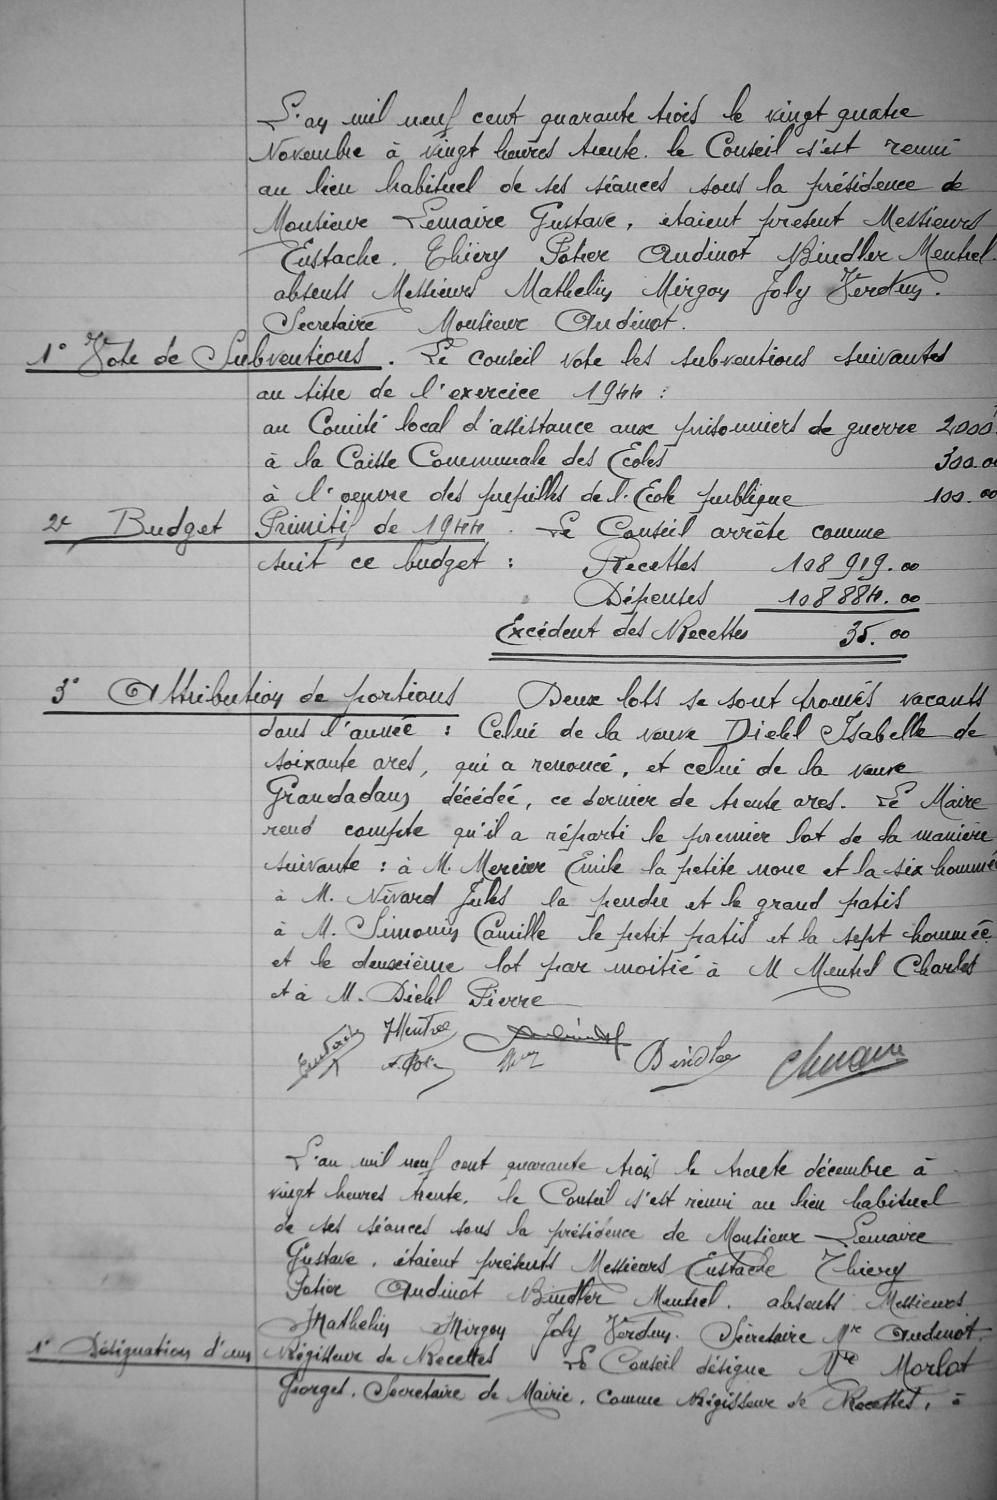 L'an mil neuf cent quarante trois le vingt quatre
Novembre à vingt heures trente. le Conseil s'est reuni
au lieu habituel de ses séances sous la présidence de
Monsieur Lemaire Gustave, étaient présent Messieurs
Eustache. Thiery Potier Audinot Bindler Mentrel.
absents Messieurs Mathelin Mirgon Joly Verdun.
Secretaire Monsieur Audinot.
1° Vote de Subventions. Le conseil vote les subventions suivantes
au titre de l'exercice 1944 :
au Comité local d'assistance aux prisonniers de guerre 2000
à la Caisse Communale des Ecoles 300.00
à l'oeuvre des pupilles de l'Ecole publique 100.00
2° Budget Primitif de 1944. Le Conseil arrête comme
suit ce budget : Recettes 108 919.00
Dépenses 108 884.00
Excédent des Recettes 35.00
3° Attribution de portions Deux lots se sont trouvés vacants
dans l'année : Celui de la veuve Diehl Isabelle de
soixante ares, qui a renoncé, et celui de la veuve
Grandadam, décédée, ce dernier de trente ares. Le Maire
rend compte qu'il a réparti le premier lot de la manière
suivante : à M. Mercier Emile la petite noue et la six hommée
à M. Nivard Jules la pendue et le grand patis
à M. Simonin Camille le petit patis et la sept hommée
et le deuxième lot par moitié à M Mentrel Charles
et à M. Diehl Pierre
Eustache Mentrel Audinot
Bindler
L'an mil neuf cent quarante trois le trente décembre à
vingt heures trente, le Conseil s'est réuni au lieu habituel
de ses séances sous la présidence de Monsieur Lemaire
Gustave, étaient présents Messieurs Eustache Thiery
Potier Audinot Bindler Mentrel. absents Messieurs
Mathelin Mirgon Joly Verdun. Secrétaire Mr Audinot.
1° Désignation d'un Régisseur de Recettes Le Conseil désigne Mr Morlot
Georges, Secretaire de Mairie, comme Régisseur de Recettes, à